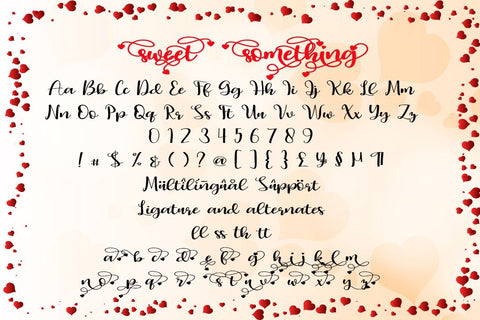 sweet something
Aa Bb Cc Dd Ee Ff Gg Hh Ii Jj Kk Ll Mm
Nn Oo Pp Qq Rr Ss Tt Uu Vv Ww Xx Yy Zz
0 1 2 3 4 5 6 7 8 9
! # $ % & ( ) ? @ [ ] { } £ ¥ § M ¶
Mültilíngûâl Sûppört
Ligature and alternates
ll ss th tt
a b c d e f g h i j k l m
n o p q r s t u v w x y z